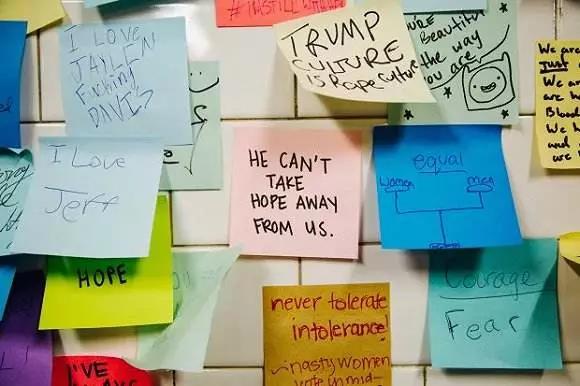 I LOVE
JAYLEN
Fucking
DAVIS
TRUMP
CULTURE
IS Rape Culture
Beautiful
the way
you are
We are
Just
We
are
Blood
We
and
are
I Love
Jeff
HE CAN'T
TAKE
HOPE AWAY
FROM US.
equal
Women
men
HOPE
Courage
Fear
never tolerate
intolerance!
nasty women
vote in mid-
I'VE